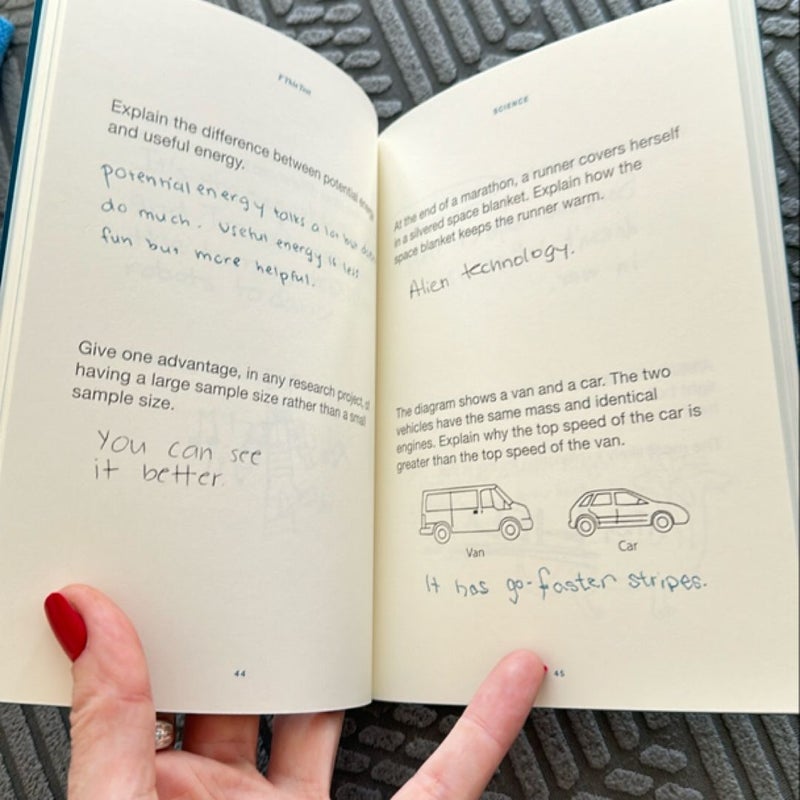 F This Test
Explain the difference between potential energy
and useful energy.
potential energy talks a lot but
do much. Useful energy is less
fun but more helpful.
Give one advantage, in any research project, of
having a large sample size rather than a small
sample size.
You can see
it better.
44
SCIENCE
At the end of a marathon, a runner covers herself
in a silvered space blanket. Explain how the
space blanket keeps the runner warm.
Alien technology.
The diagram shows a van and a car. The two
vehicles have the same mass and identical
engines. Explain why the top speed of the car is
greater than the top speed of the van.
Van
Car
It has go-faster stripes.
45